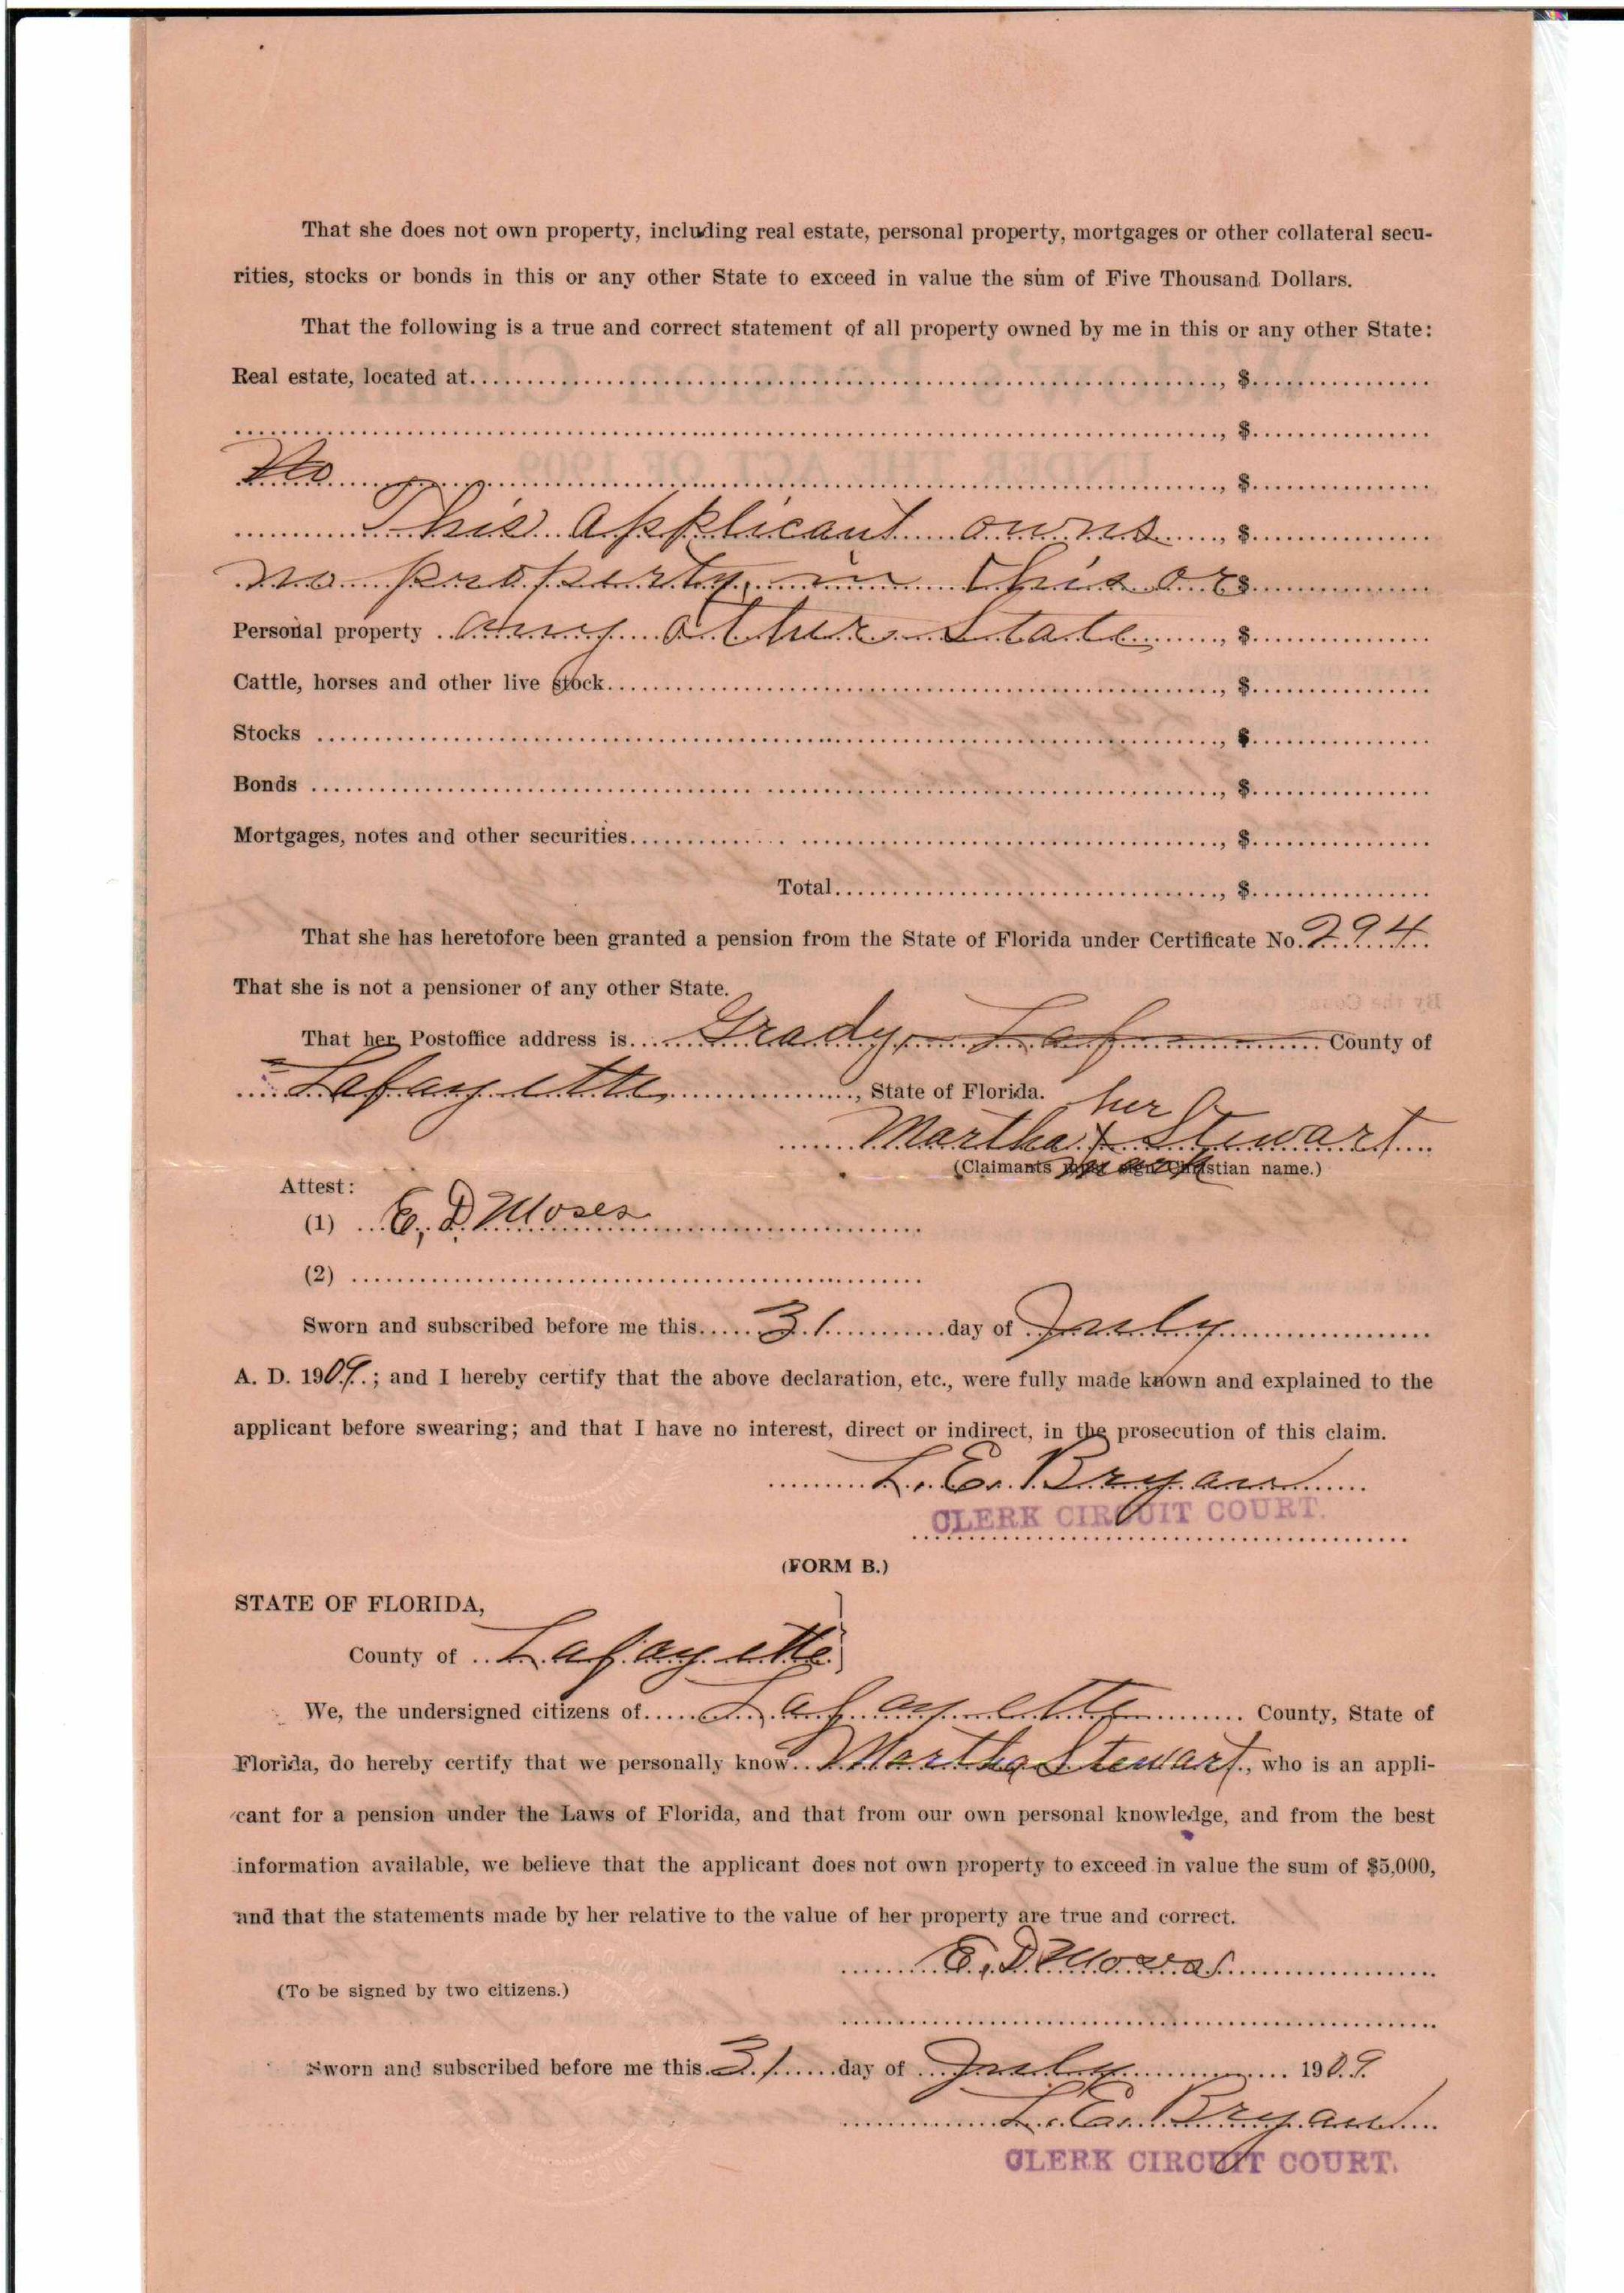 That she does not own property, including real estate, personal property, mortgages or other collateral secu-
rities, stocks or bonds in this or any other State to exceed in value the sum of Five Thousand Dollars.
That the following is a true and correct statement of all property owned by me in this or any other State:
Real estate, located at........, $........
........, $........
No........, $........
This applicant owns, $........
no property in this or $........
Personal property any other State, $........
Cattle, horses and other live stock........, $........
Stocks ........, $........
Bonds ........, $........
Mortgages, notes and other securities........, $........
Total........, $........
That she has heretofore been granted a pension from the State of Florida under Certificate No. 294
That she is not a pensioner of any other State.
That her Postoffice address is Grady, Laf County of
Lafayette, State of Florida.
her
Martha X Stewart
mark
(Claimants must sign Christian name.)
Attest:
(1) E. D. Moses
(2) ........
Sworn and subscribed before me this 31 day of July
A. D. 1909; and I hereby certify that the above declaration, etc., were fully made known and explained to the
applicant before swearing; and that I have no interest, direct or indirect, in the prosecution of this claim.
L. E. Bryan
CLERK CIRCUIT COURT.
(FORM B.)
STATE OF FLORIDA,
County of Lafayette
We, the undersigned citizens of Lafayette County, State of
Florida, do hereby certify that we personally know Martha Stewart, who is an appli-
cant for a pension under the Laws of Florida, and that from our own personal knowledge, and from the best
information available, we believe that the applicant does not own property to exceed in value the sum of $5,000,
and that the statements made by her relative to the value of her property are true and correct.
E. D. Moses
(To be signed by two citizens.)
Sworn and subscribed before me this 31 day of July 1909
L. E. Bryan
CLERK CIRCUIT COURT.